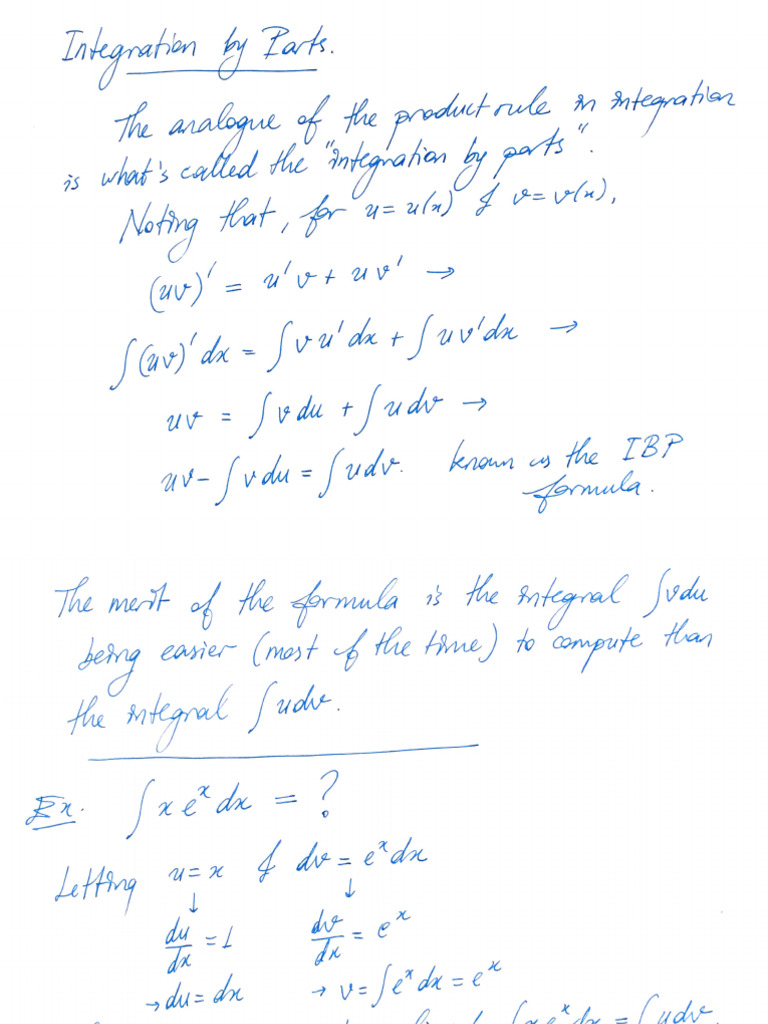 Integration by Parts.
The analogue of the product rule in integration
is what's called the "integration by parts".
Noting that, for u = u(x) & v = v(x),
(uv)' = u'v + uv' →
∫(uv)'dx = ∫vu'dx + ∫uv'dx →
uv = ∫vdu + ∫udv →
uv - ∫vdu = ∫udv. known as the IBP
formula.
The merit of the formula is the integral ∫vdu
being easier (most of the time) to compute than
the integral ∫udv.
Ex. ∫xe^x dx = ?
Letting u = x & dv = e^x dx
↓ ↓
du/dx = 1 dv/dx = e^x
→ du = dx → v = ∫e^x dx = e^x
∫xe^x dx = ∫udv.